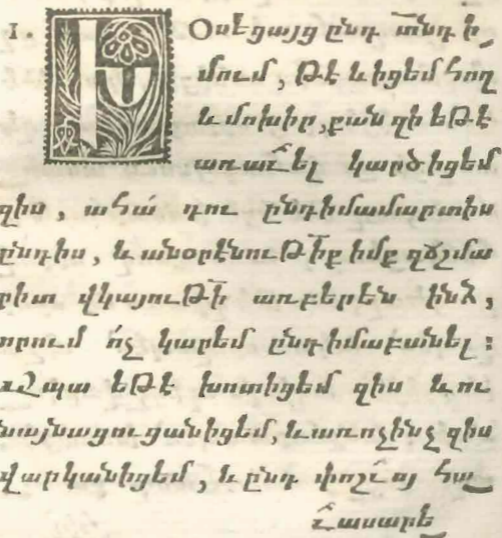 1. ԽՕսեցայց ընդ տնդ ի
մում, թէ և իցեմ հող
և մոխիր, քան զի եթէ
առաւել կարծիցեմ
զիս, ահա՛ դու ընդիմամարտիս
ընդիս, և անօրէնութիք իմք զճշմա
րիտ վկայութի առբերեն ինձ,
որում ո՛չ կարեմ ընդիմաբանել։
Ապա եթէ խոտիցեմ զիս և ու
նայնացուցանիցեմ, և առոչինչ զիս
վարկանիցեմ, և ընդ փոշւոյ հա
ւասարե